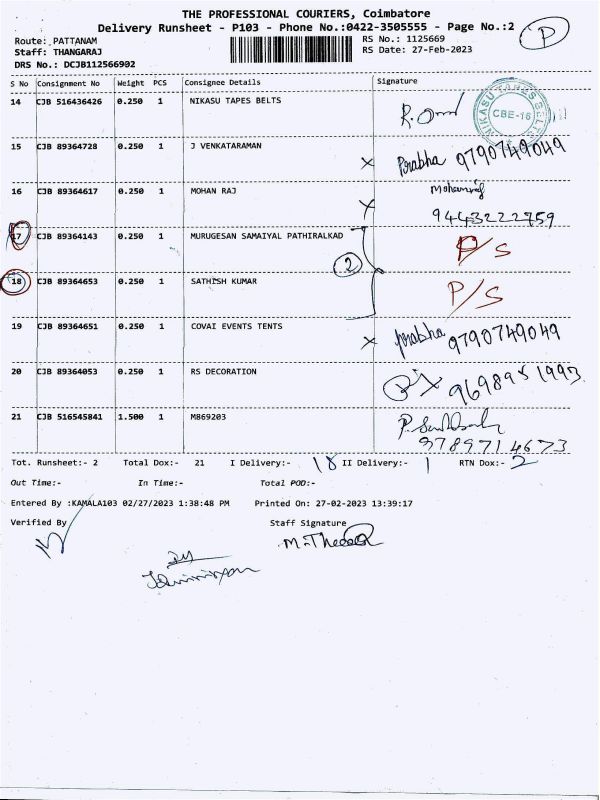 THE PROFESSIONAL COURIERS, Coimbatore
Delivery Runsheet - P103 - Phone No.:0422-3505555 - Page No.:2
P
Route: PATTANAM
RS No.: 1125669
Staff: THANGARAJ
RS Date: 27-Feb-2023
DRS No.: DCJB112566902
S No Consignment No Weight PCS Consignee Details Signature
14 CJB 516436426 0.250 1 NIKASU TAPES BELTS
NIKASU TAPES BELTS
CBE-16
15 CJB 89364728 0.250 1 J VENKATARAMAN
x Prabha 9790749049
16 CJB 89364617 0.250 1 MOHAN RAJ
Mohanraj
x 9443222759
17 CJB 89364143 0.250 1 MURUGESAN SAMAIYAL PATHIRALKAD
P/S
2
18 CJB 89364653 0.250 1 SATHISH KUMAR
P/S
19 CJB 89364651 0.250 1 COVAI EVENTS TENTS
x Prabha 9790749049
20 CJB 89364053 0.250 1 RS DECORATION
21 CJB 516545841 1.500 1 M869203
9789714673
Tot. Runsheet:- 2 Total Dox:- 21 I Delivery:- 18 II Delivery:- 1 RTN Dox:- 2
Out Time:- In Time:- Total POD:-
Entered By :KAMALA103 02/27/2023 1:38:48 PM Printed On: 27-02-2023 13:39:17
Verified By Staff Signature